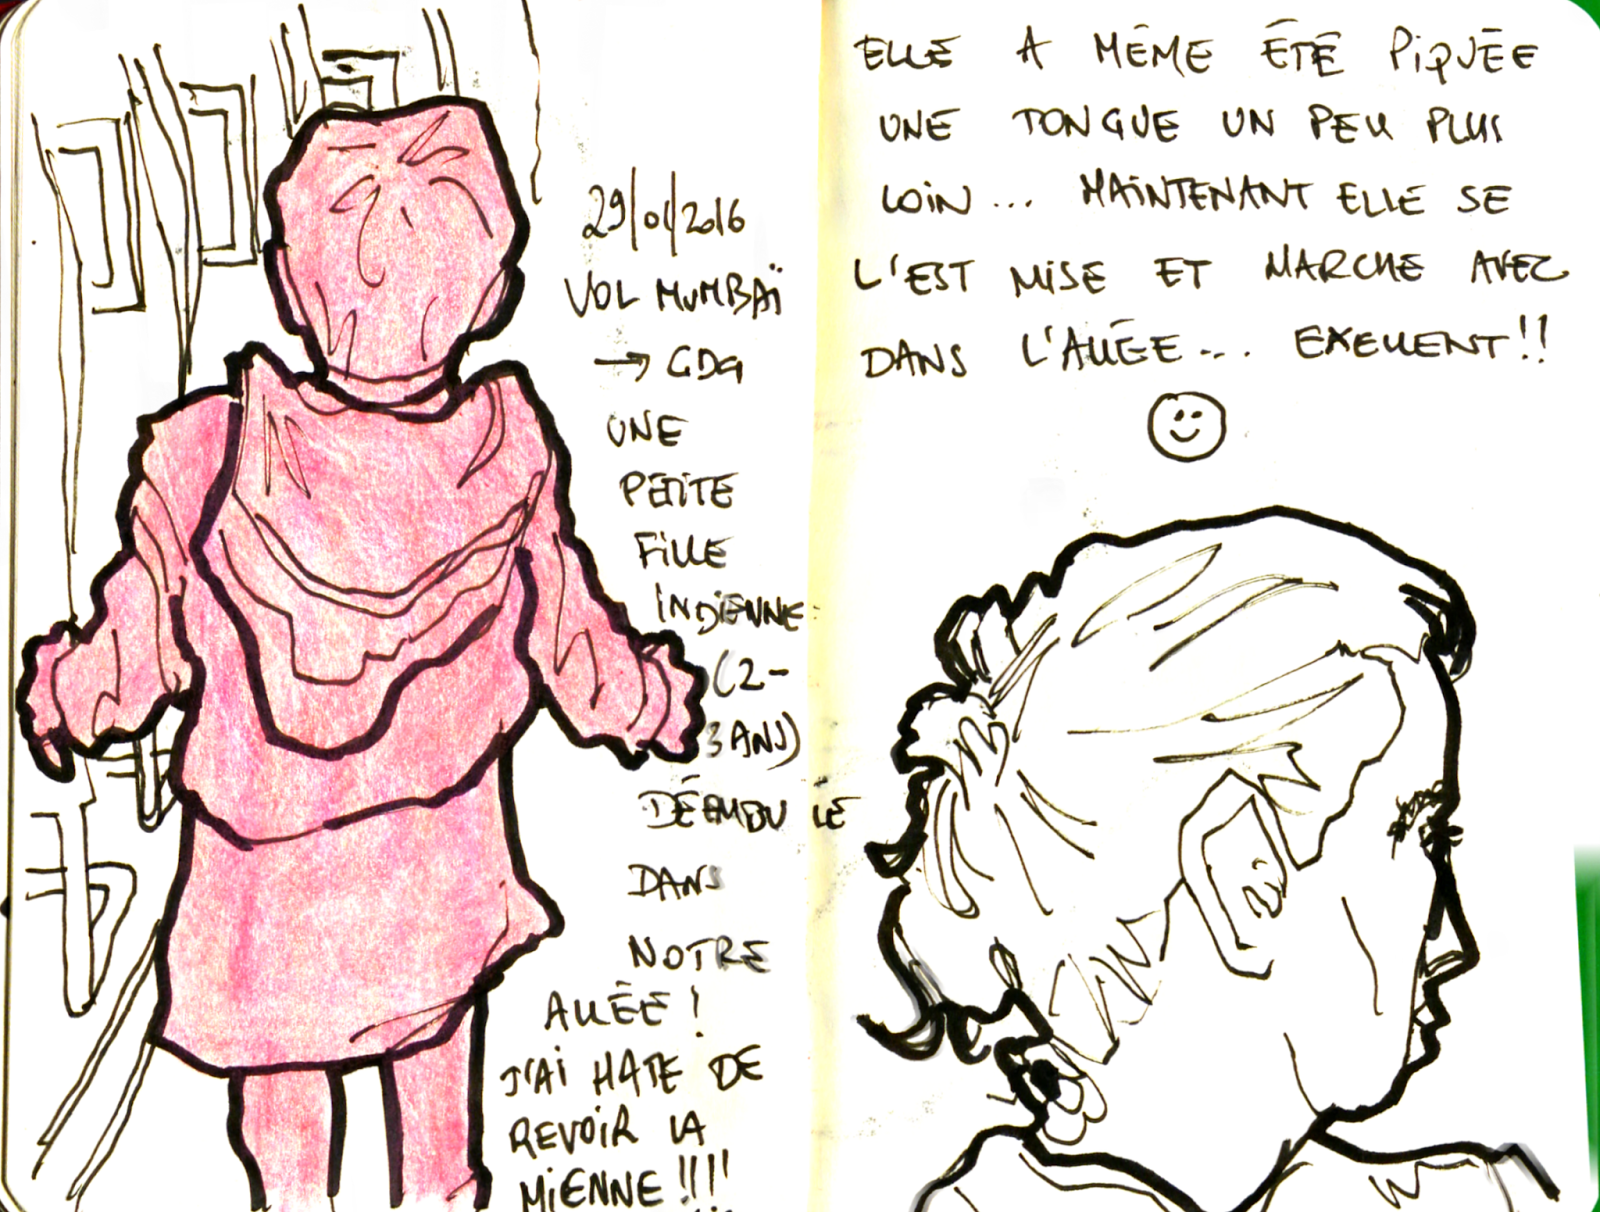 29/01/2016
VOL MUMBAÏ
→ CDG
UNE
PETITE
FILLE
INDIENNE
(2-
3 ANS)
DÉAMBULE
DANS
NOTRE
ALLÉE !
J'AI HATE DE
REVOIR LA
MIENNE !!!!
ELLE A MÊME ÉTÉ PIQUÉE
UNE TONGUE UN PEU PLUS
LOIN... MAINTENANT ELLE SE
L'EST MISE ET MARCHE AVEC
DANS L'ALLÉE... EXELLENT !!